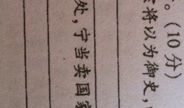 。(10分)
会将以为御史,
处,宁当卖国家